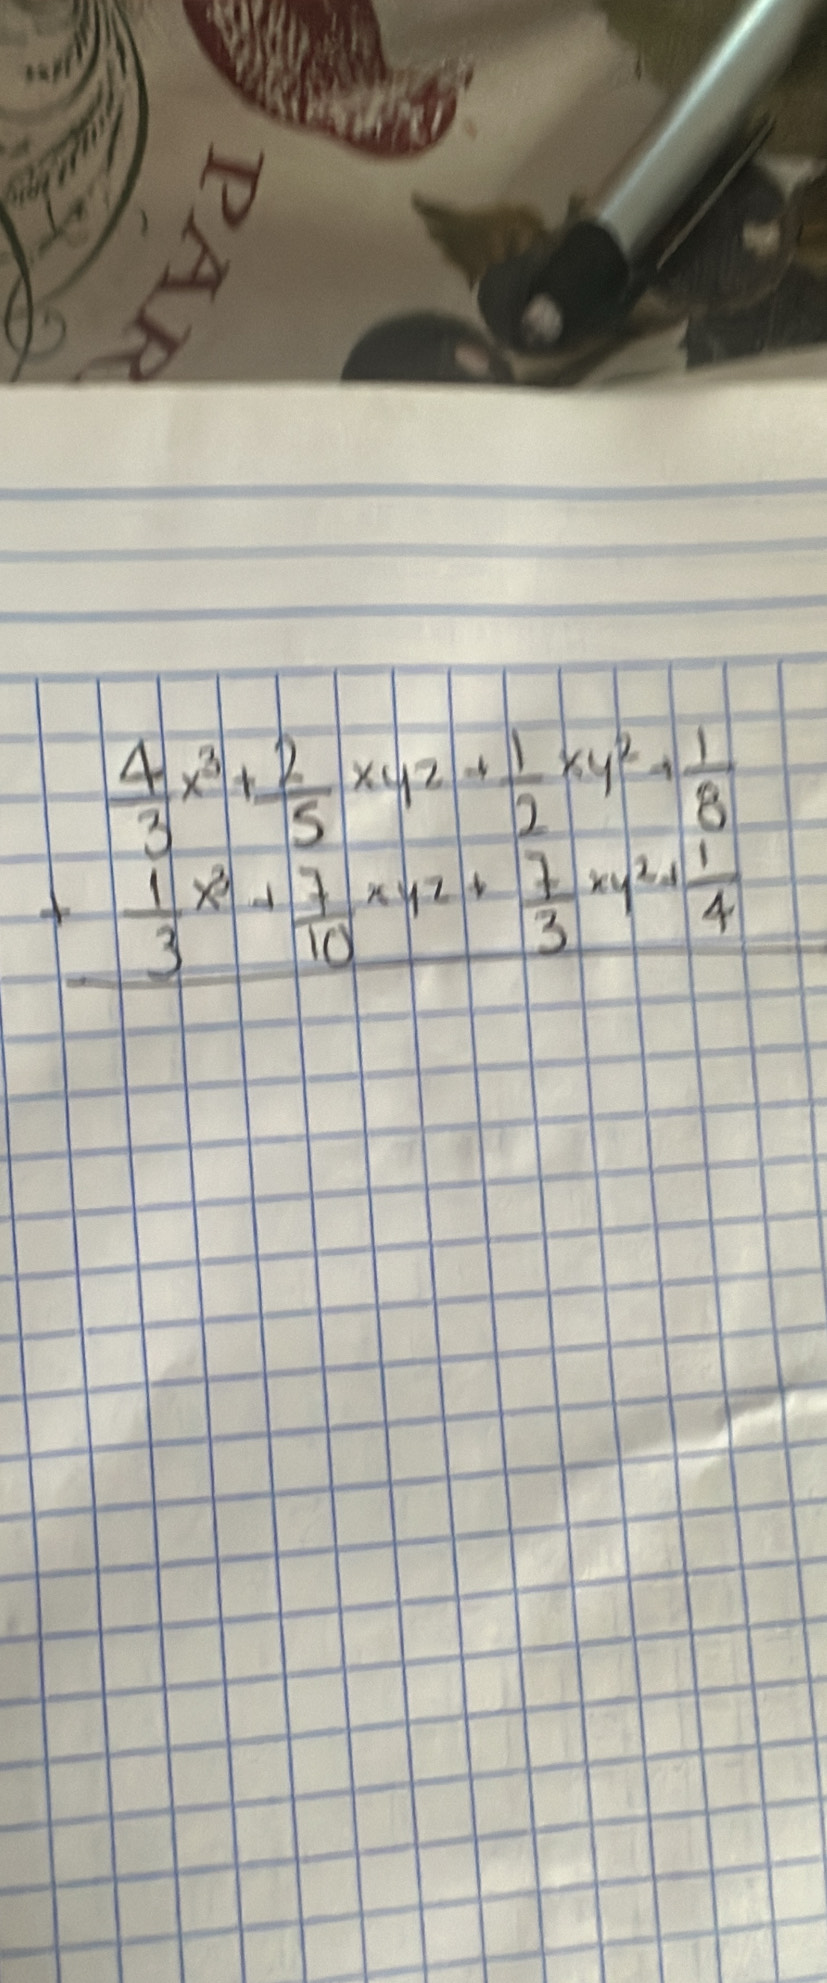 PAR
4/3 x³ + 2/5 xyz + 1/2 xy² + 1/8
+ 1/3 x³ + 7/10 xyz + 7/3 xy² + 1/4